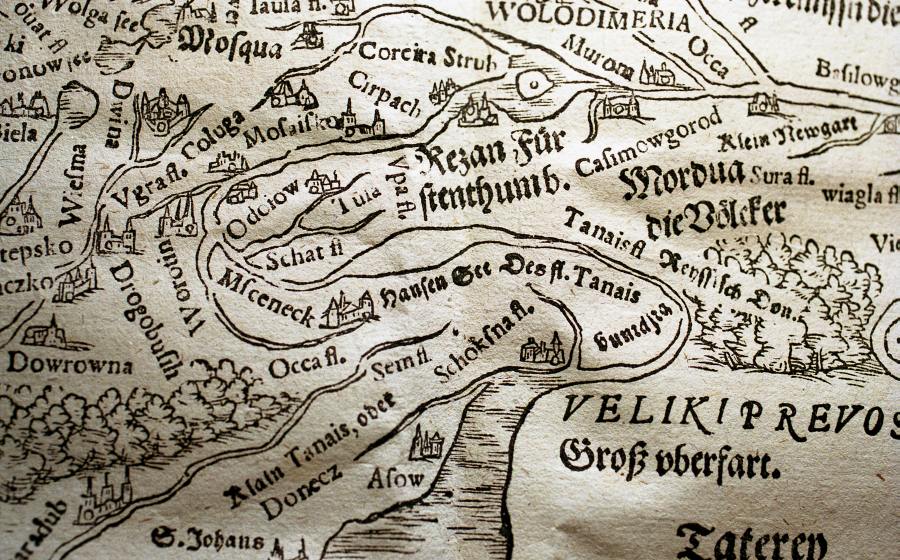 Wolga see
ki
Taula fl.
WOLODIMERIA
Mosqua
Corcira Strub
Murom
Occa
fl
Basilowg
Dwina
Cirpach
Biela
Mosaisko
Coluga
Wesma
Vgra fl.
Rezan Für
stenthumb.
Casimowgorod
Klein Newgart
Mordua
Sura fl.
die Völcker
wiagla fl
Odciow
Tula
Vpa fl.
Schat fl
Tanais fl
Reyssisch Don.
tepsko
aczko
Worotin
Drogobusch
Msceneck
Hansen See Des fl. Tanais
Dowrowna
Occa fl.
Sem fl.
Schoksna fl.
VELIKI PREVOS
Groß vberfart.
Klain Tanais, oder
Donecz
Asow
S. Johans
Tateren